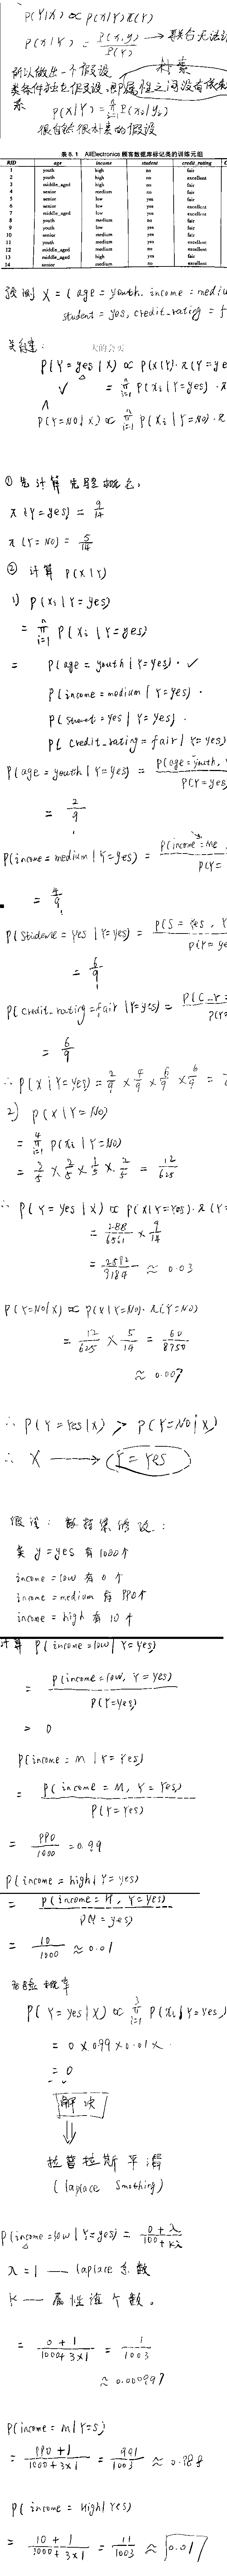 P(Y|X) ∝ P(X|Y)π(Y)
P(X|Y) = P(X,Y) / P(Y) → 联合无法
所以做出一个假设 朴素
类条件独立假设,即属性之间没有依赖
系
P(X|Y) = π P(Xi|Y)
很有 很朴素的假设
表 8.1 AllElectronics 顾客数据库标记类的训练元组
RID age income student credit_rating C
1 youth high no fair
2 youth high no excellent
3 middle_aged high no fair
4 senior medium no fair
5 senior low yes fair
6 senior low yes excellent
7 middle_aged low yes excellent
8 youth medium no fair
9 youth low yes fair
10 senior medium yes fair
11 youth medium yes excellent
12 middle_aged medium no excellent
13 middle_aged high yes fair
14 senior medium no excellent
预测 X = (age = youth, income = mediu
student = yes, credit_rating = f
关键:
P(Y=yes|X) ∝ P(X|Y)·π(Y=ye
√ = π P(Xi|Y=yes)·π
∧
P(Y=NO|X) ∝ π P(Xi|Y=NO)·π
① 先计算先验概率:
π(Y=yes) = 9/14
π(Y=NO) = 5/14
② 计算 P(X|Y)
1) P(Xi|Y=yes)
= π P(Xi|Y=yes)
= P(age=youth|Y=yes)· √
P(income=medium|Y=yes)·
P(student=Yes|Y=yes)·
P(credit_rating=fair|Y=yes)
P(age=youth|Y=yes) = P(age=youth, / P(Y=yes
= 2/9
P(income=medium|Y=yes) = P(income=me / P(Y=
= 4/9
P(Studene=Yes|Y=Yes) = P(S=Yes, Y / P(Y=ye
= 6/9
P(credit_rating=fair|Y=yes) = P(C_r= / P(Y=
= 6/9
∴ P(X|Y=Yes) = 2/9 × 4/9 × 6/9 × 6/9 =
2) P(X|Y=NO)
= π P(Xi|Y=NO)
= 3/5 × 2/5 × 1/5 × 2/5 = 12/625
∴ P(Y=Yes|X) ∝ P(X|Y=Yes)·π(Y=
= 288/6561 × 9/14
= 2592/9184 ≈ 0.03
P(Y=NO|X) ∝ P(X|Y=NO)·π(Y=NO)
= 12/625 × 5/14 = 60/8750
≈ 0.007
∴ P(Y=Yes|X) > P(Y=NO|X)
∴ X → Y=Yes
假设: 数据集修改:
类 y=yes 有1000个
income=low 有 0 个
income=medium 有 990个
income=high 有 10 个
计算 P(income=low|Y=Yes)
= P(income=low, Y=Yes) / P(Y=yes)
= 0
P(income=M|Y=Yes)
= P(income=M, Y=Yes) / P(Y=Yes)
= 990/1000 = 0.99
P(income=high|Y=yes)
= P(income=H, Y=Yes) / P(Y=yes)
= 10/1000 ≈ 0.01
后验概率
P(Y=yes|X) ∝ π P(Xi|Y=Yes)
= 0 × 0.99 × 0.01 ×
= 0
解决
拉普拉斯平滑
(laplace Smothing)
P(income=low|Y=yes) = 0+λ / 100+kλ
λ=1 — laplace系数
K — 属性值个数。
= 0+1 / 1000+3×1 = 1/1003
≈ 0.000997
P(income=m|Y=S)
= 990+1 / 1000+3×1 = 991/1003 ≈ 0.988
P(income=High|Yes)
= 10+1 / 1000+3×1 = 11/1003 ≈ 0.01